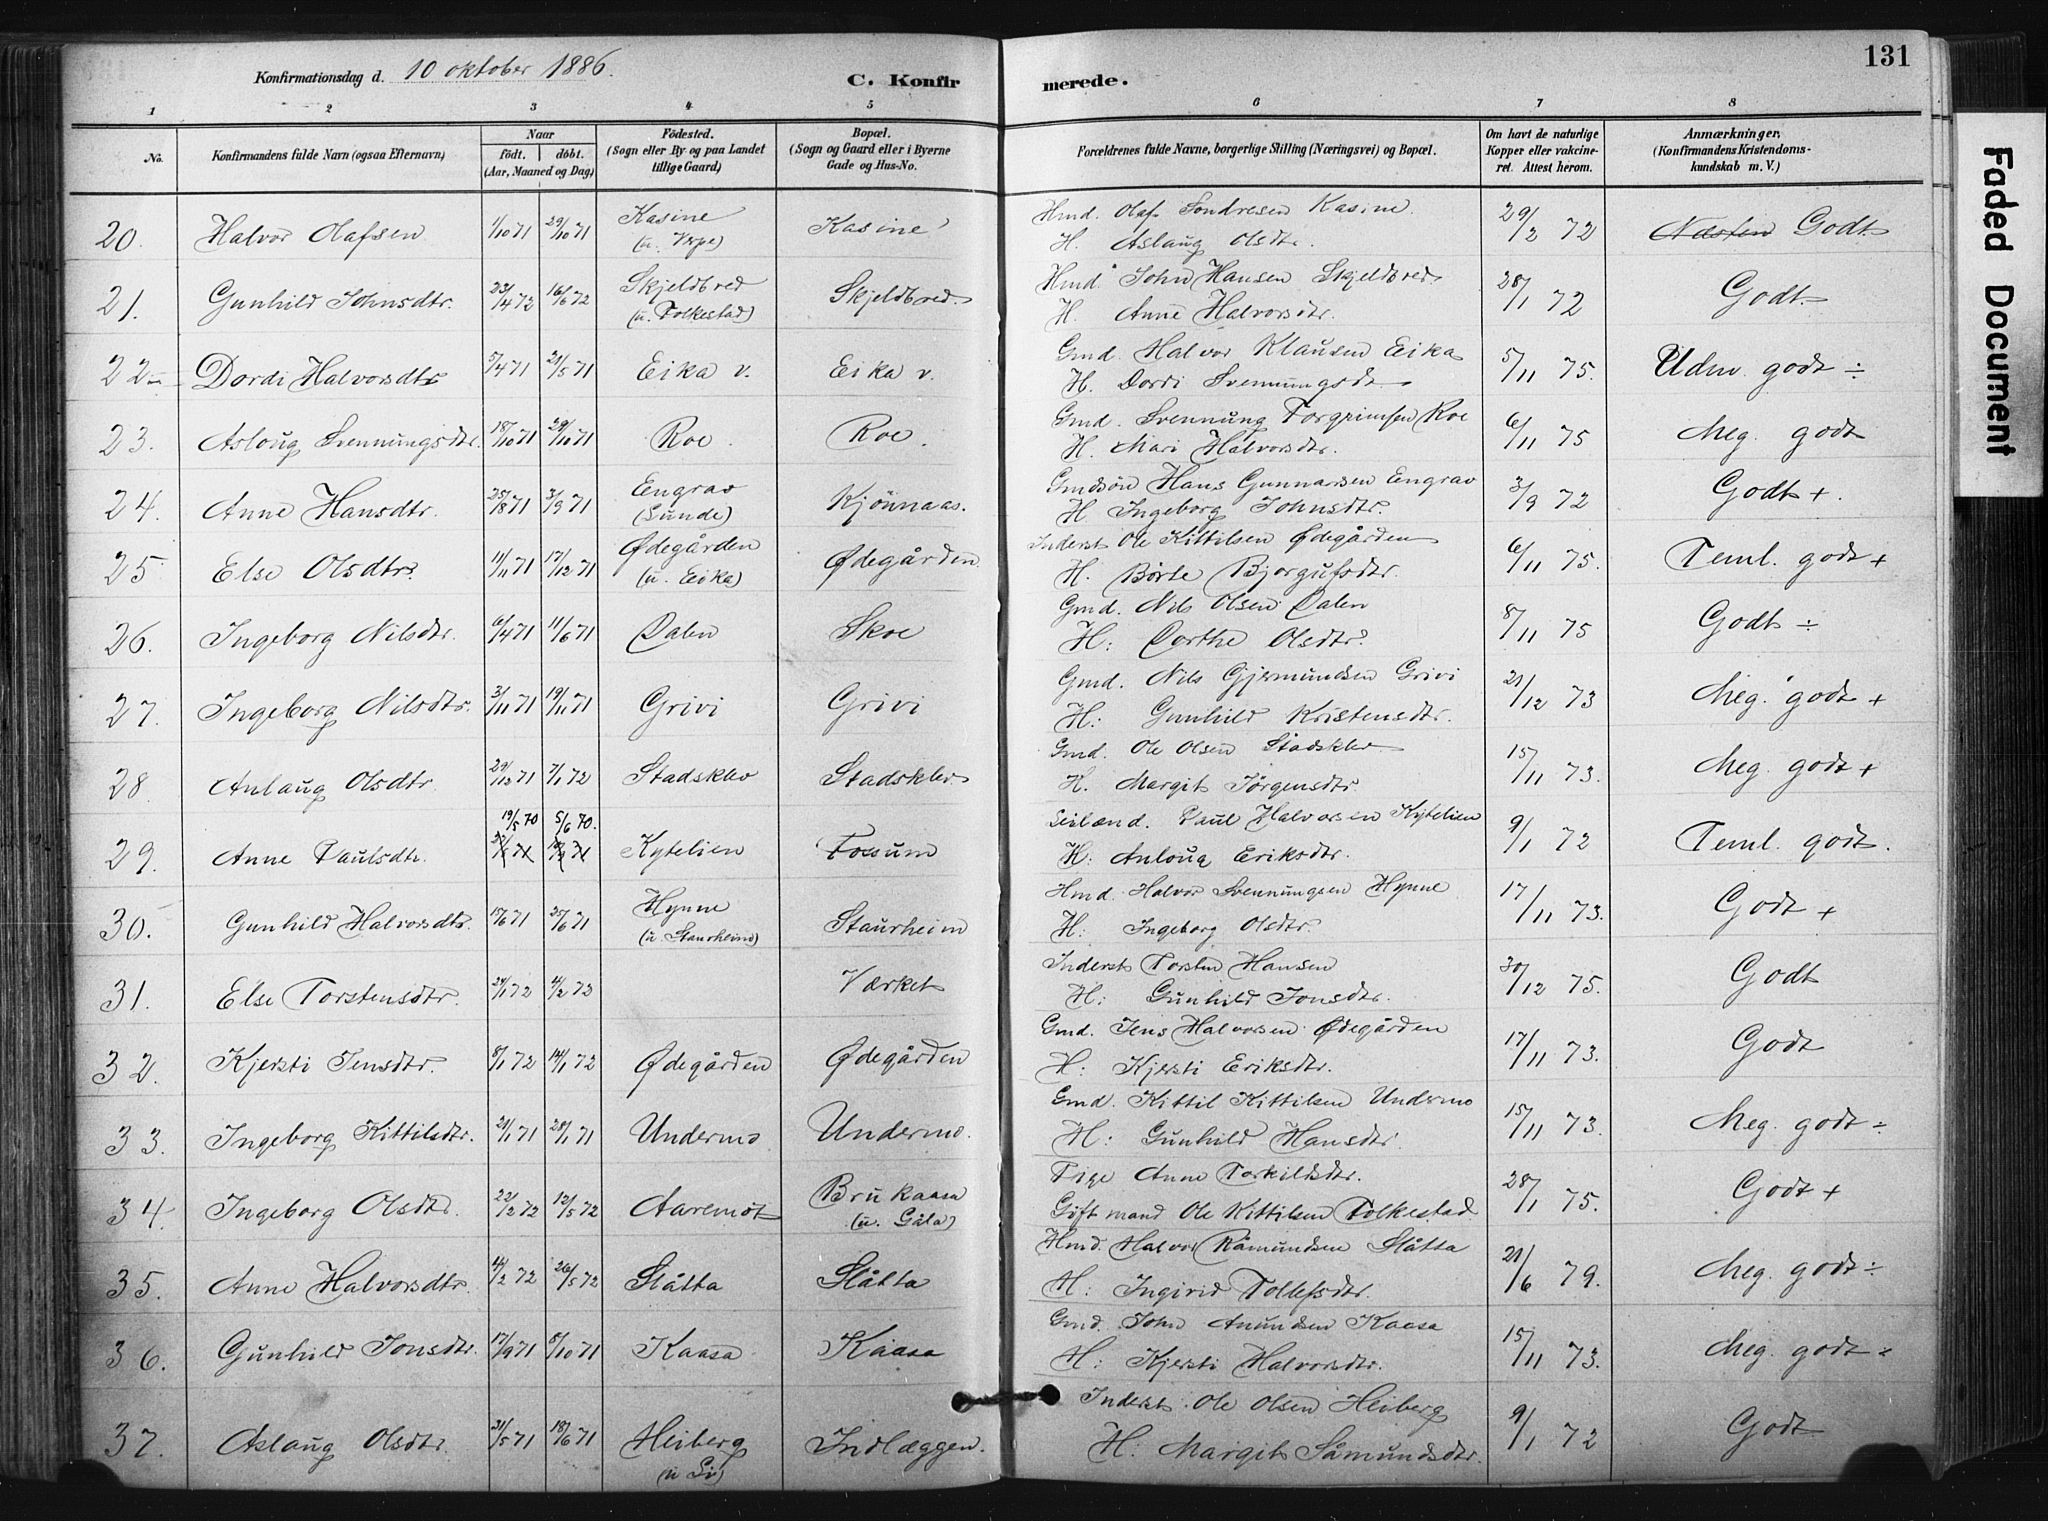 131
Konfirmationsdag d. 10 oktober 1886.
C. Konfir merede.
1 2 3 4 5 6 7 8
No.
Konfirmandens fulde Navn (ogsaa Efternavn)
Naar
födt. döbt.
(Aar, Maaned og Dag)
Födested.
(Sogn eller By og paa Landet
tillige Gaard)
Bopæl.
(Sogn og Gaard eller i Byerne
Gade og Hus-No.
Forældrenes fulde Navne, borgerlige Stilling (Næringsvei) og Bopæl.
Om havt de naturlige
Kopper eller vakcine-
ret. Attest herom.
Anmærkninger.
(Konfirmandens Kristendoms-
kundskab m. V.)
Faded Document
20. Halvor Olafsen 1/10 71 29/10 71 Kasine Kasine Hmd. Olaf Sondresen Kasine. 29/2 72 Næsten Godt
(u. Verpe) H. Aslaug Olsdtr.
21. Gunhild Johnsdtr. 23/4 72 16/6 72 Skjeldbred Skjeldbred Hmd. John Hansen Skjeldbred 28/1 72 Godt
(u. Folkestad) H. Anne Halvorsdtr.
22 Dordi Halvorsdtr 5/4 71 21/5 71 Eika v. Eika v. Gmd. Halvor Klausen Eika 5/11 75. Udm. godt ÷
H. Dordi Svennungsdt.
23. Asloug Svennungsdtr. 18/10 71 29/10 71 Roe. Roe. Gmd. Svennung Torgrimsen Roe 6/11 75 Meg. godt
H. Mari Halvorsdtr.
24. Anne Hansdtr. 25/8 71 3/9 71 Eengrav Kjönnaas. Gmdsön Hans Gunnarsen Engrav 3/9 72 Godt +.
(Lunde) H Ingeborg Johnsdtr.
25 Else Olsdtr. 11/11 71 17/12 71 Ødegården Ødegården Inderst Ole Kittilsen Ødegården 6/11 75. Teml. godt +
(u. Eika) H. Börte Bjorgufsdtr.
26. Ingeborg Nilsdtr. 6/4 71 11/6 71 Dalen Skoe Gmd. Nils Olsen Dalen 8/11 75 Godt ÷
H: Dorthe Olsdtr.
27. Ingeborg Nilsdtr. 3/11 71 19/11 71 Grivi Grivi Gmd. Nils Gjermundsen Grivi 21/12 73 Meg. godt +
H: Gunhild Kristensdtr.
28 Anlaug Olsdtr. 29/12 71 7/1 72 Stadsklev Stadsklev Gmd. Ole Olsen Stadsklev 15/11 73. Meg. godt +
H. Margit Jörgensdtr
19/5 70 5/6 70.
29. Anne Paulsdtr. Kytelien Fossum Paul Halvorsen Kytelien 9/1 72 Teml. godt.
H: Anloug Eriksdtr.
30. Gunhild Halvorsdtr. 15/6 71 25/6 71 Hynne Staurheim Hmd. Halvor Svennungsen Hynne 17/11 73. Godt +
(u. Staurheim) H: Ingeborg Olsdtr.
31. Else Torstensdtr. 24/1 72 4/2 72 Værket Inderst Torsten Hansen 30/12 75. Godt
H: Gunhild Jonsdtr.
32. Kjersti Jensdtr. 8/1 72 14/1 72 Ødegården Ødegården Gmd. Jens Halvorsen Ødegården 17/11 73. Godt
H: Kjersti Eriksdtr.
33. Ingeborg Kittilsdtr. 21/1 71 28/1 71 Undermo Undermo. Gmd. Kittil Kittilsen Undermo 15/11 73. Meg. godt ÷
H: Gunhild Hansdtr.
34. Ingeborg Olsdtr. 22/2 72 12/5 72 Aaremot Brukaasa Pige Anne Torkildsdtr. 28/1 75. Godt +
(u. Gåla) Gift mand Ole Kittilsen Folkestad
35. Anne Halvorsdtr. 14/2 72 26/5 72 Slåtta Slåtta Hmd. Halvor Råmundsen Slåtta 21/6 79. Meg. godt ÷
H: Ingirid Tollefsdtr.
36. Gunhild Jonsdtr. 17/9 71 8/10 71 Kaasa Kaasa Gmd. John Anundsen Kaasa 15/11 73. Meg. godt ÷
H: Kjersti Halvorsdtr.
37. Aslaug Olsdtr. 31/5 71 18/6 71 Heiberg Indlæggen. Inderst. Ole Olsen Heiberg 9/1 72 Godt
H: Margit Såmundsdtr.